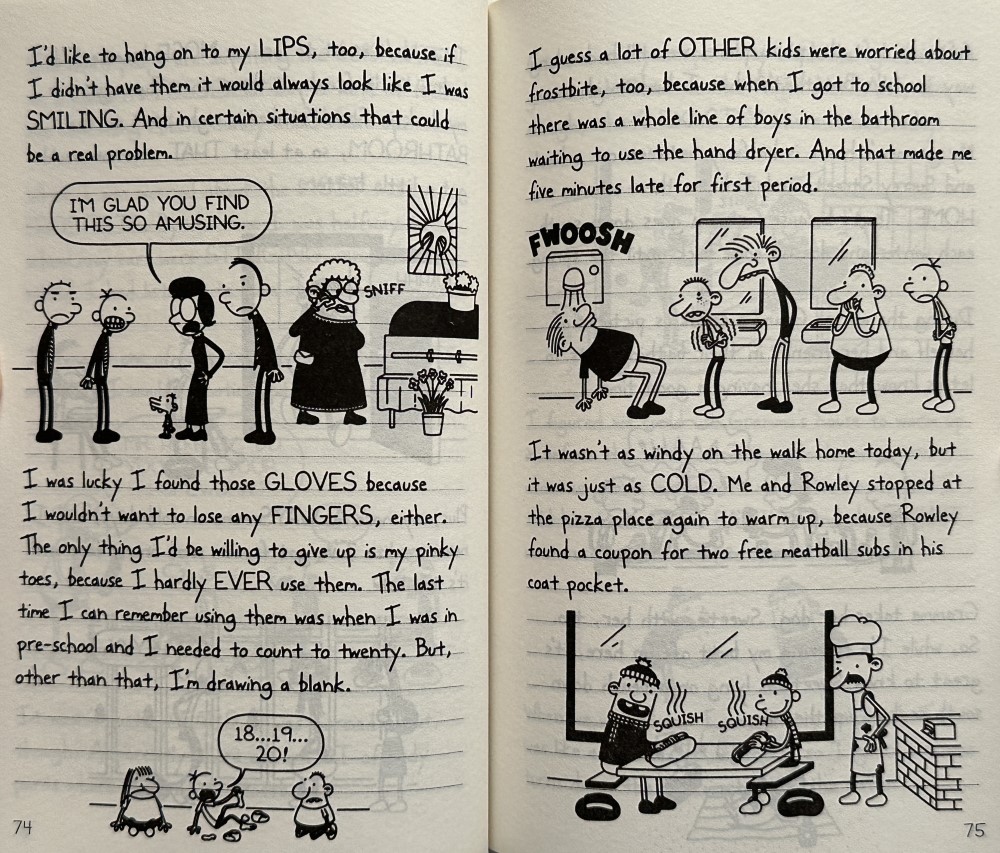 I'd like to hang on to my LIPS, too, because if
I didn't have them it would always look like I was
SMILING. And in certain situations that could
be a real problem.
I'M GLAD YOU FIND
THIS SO AMUSING.
SNIFF
I was lucky I found those GLOVES because
I wouldn't want to lose any FINGERS, either.
The only thing I'd be willing to give up is my pinky
toes, because I hardly EVER use them. The last
time I can remember using them was when I was in
pre-school and I needed to count to twenty. But,
other than that, I'm drawing a blank.
18...19...
20!
74
I guess a lot of OTHER kids were worried about
frostbite, too, because when I got to school
there was a whole line of boys in the bathroom
waiting to use the hand dryer. And that made me
five minutes late for first period.
FWOOSH
It wasn't as windy on the walk home today, but
it was just as COLD. Me and Rowley stopped at
the pizza place again to warm up, because Rowley
found a coupon for two free meatball subs in his
coat pocket.
SQUISH
SQUISH
75